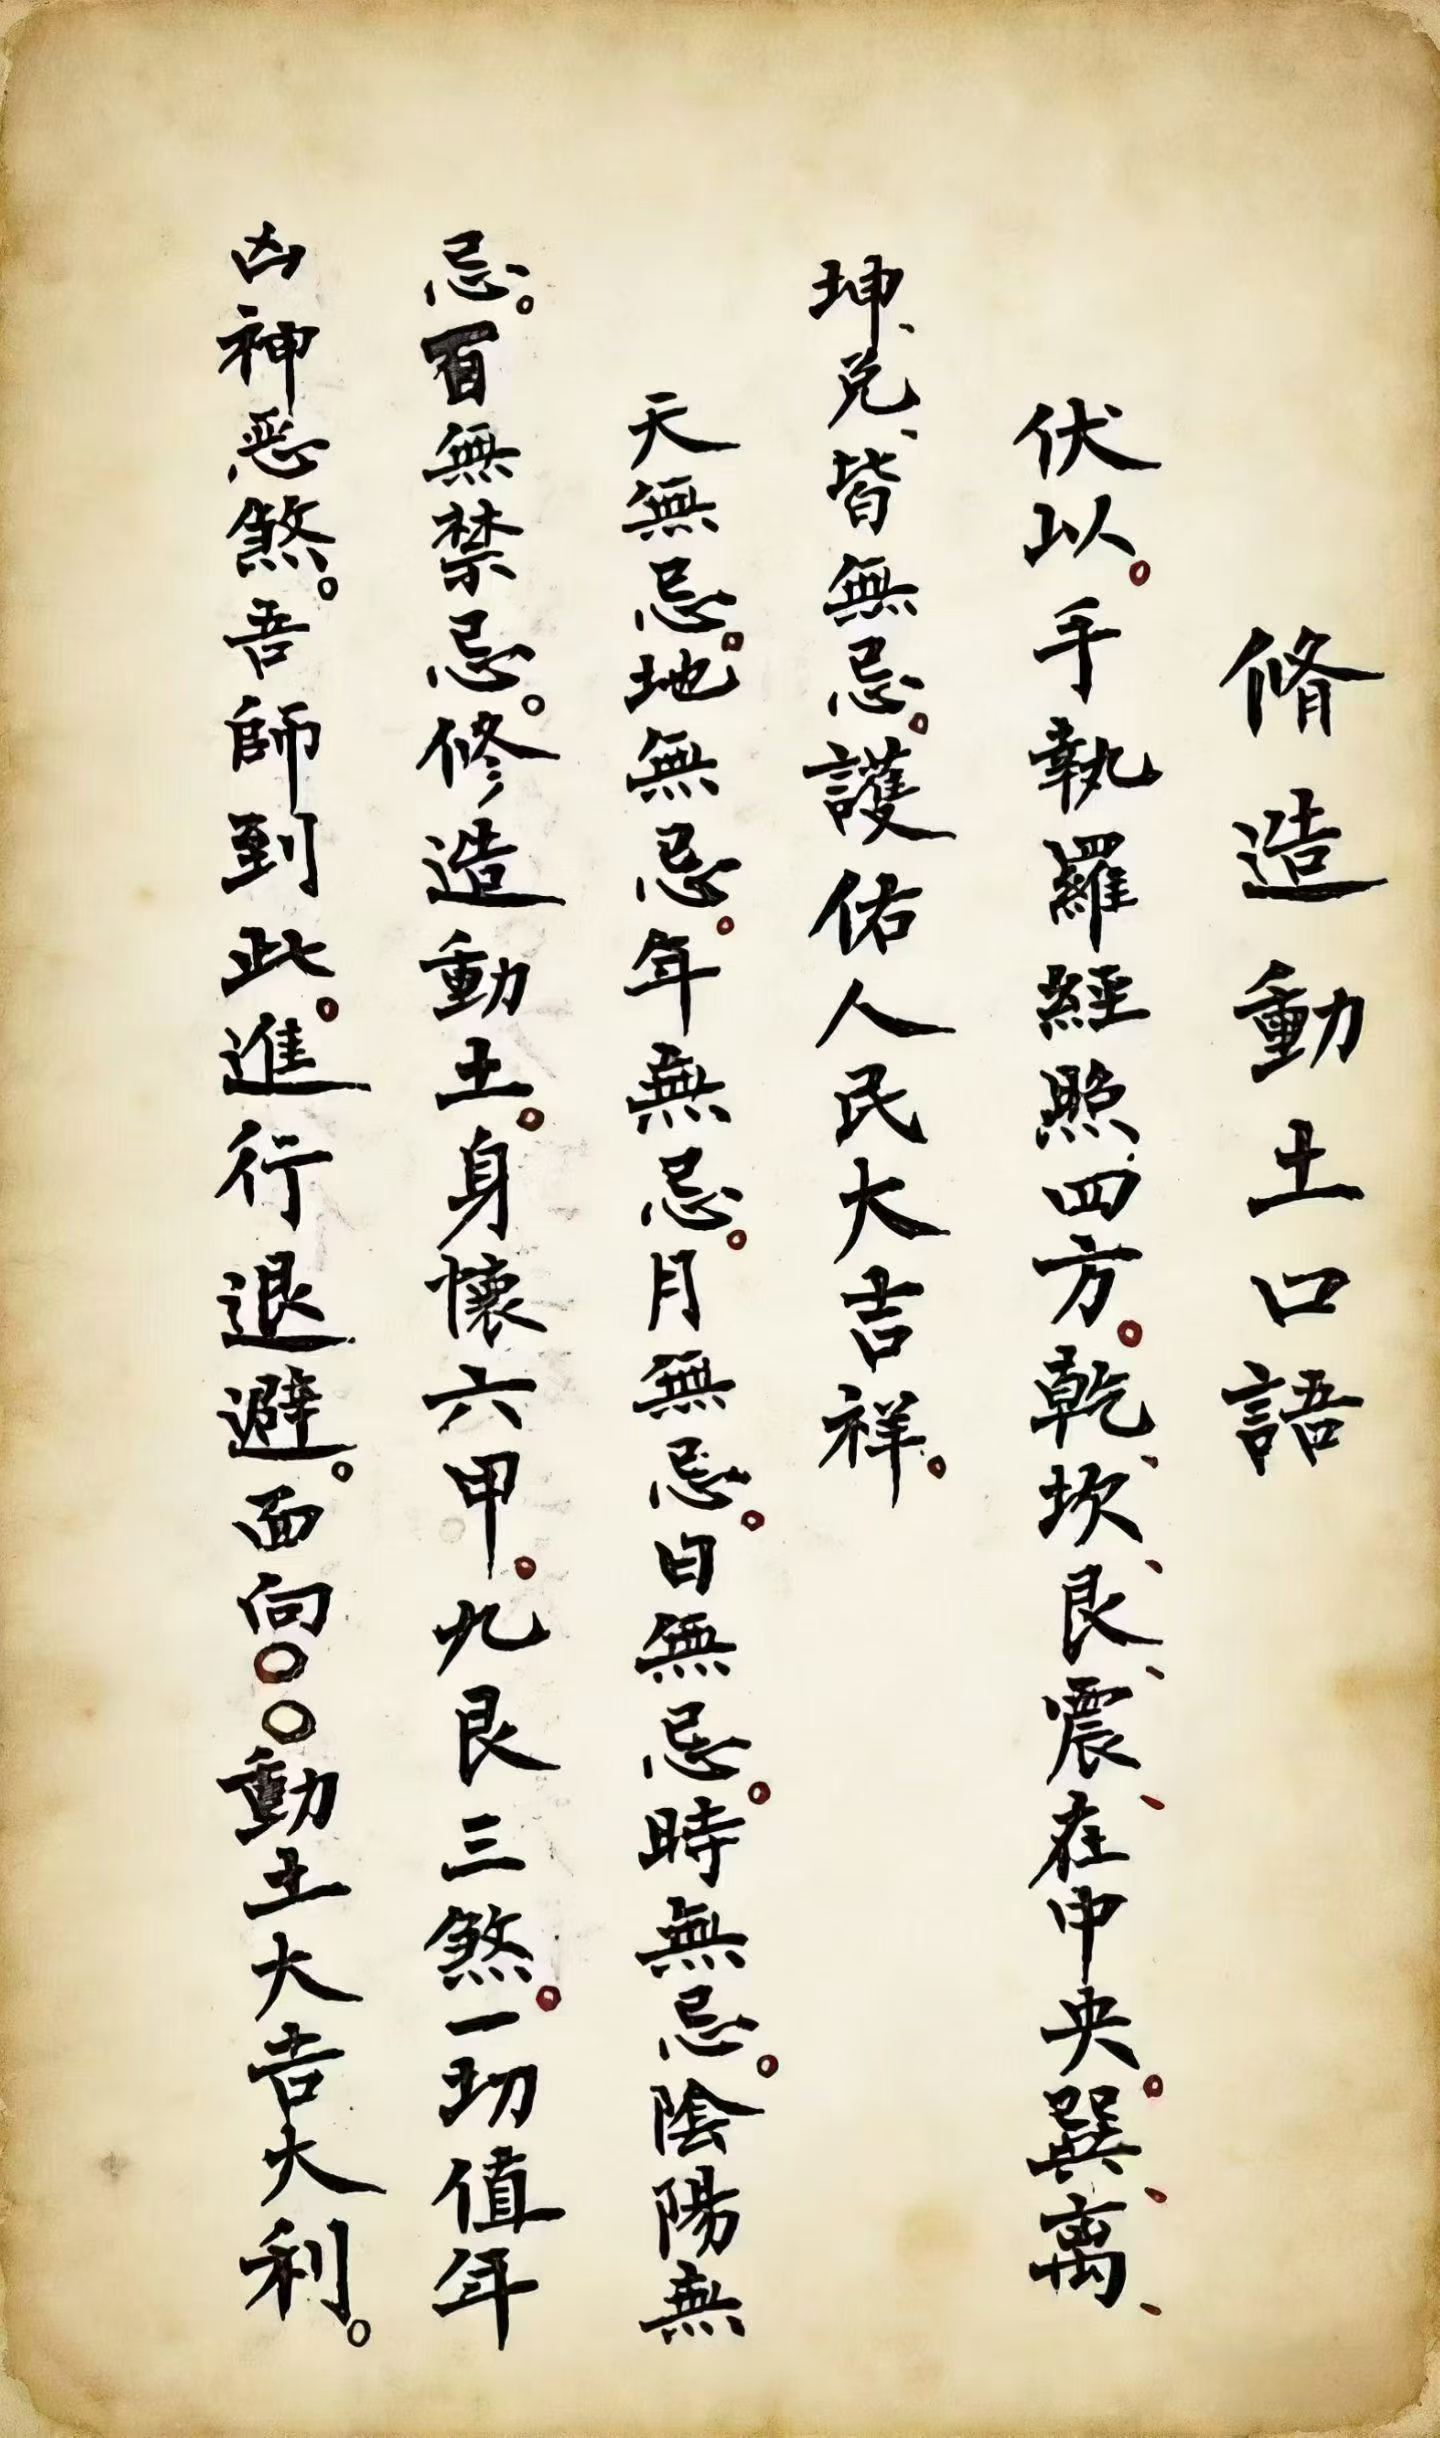 脩造動土口語
伏以。手執羅經照四方。乾、坎、艮、震、在中央。巽、离、
坤、兑、皆無忌。護佑人民大吉祥。
天無忌。地無忌。年無忌。月無忌。日無忌。時無忌。陰陽無
忌。百無禁忌。修造動土。身懷六甲。九艮三煞。一切值年
凶神恶煞。吾師到此。進行退避。面向○○動土大吉大利。